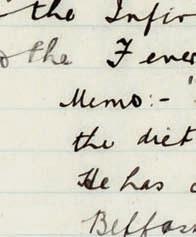 the Infir
the Fever
Memo:-
the diet
He has
Belfas